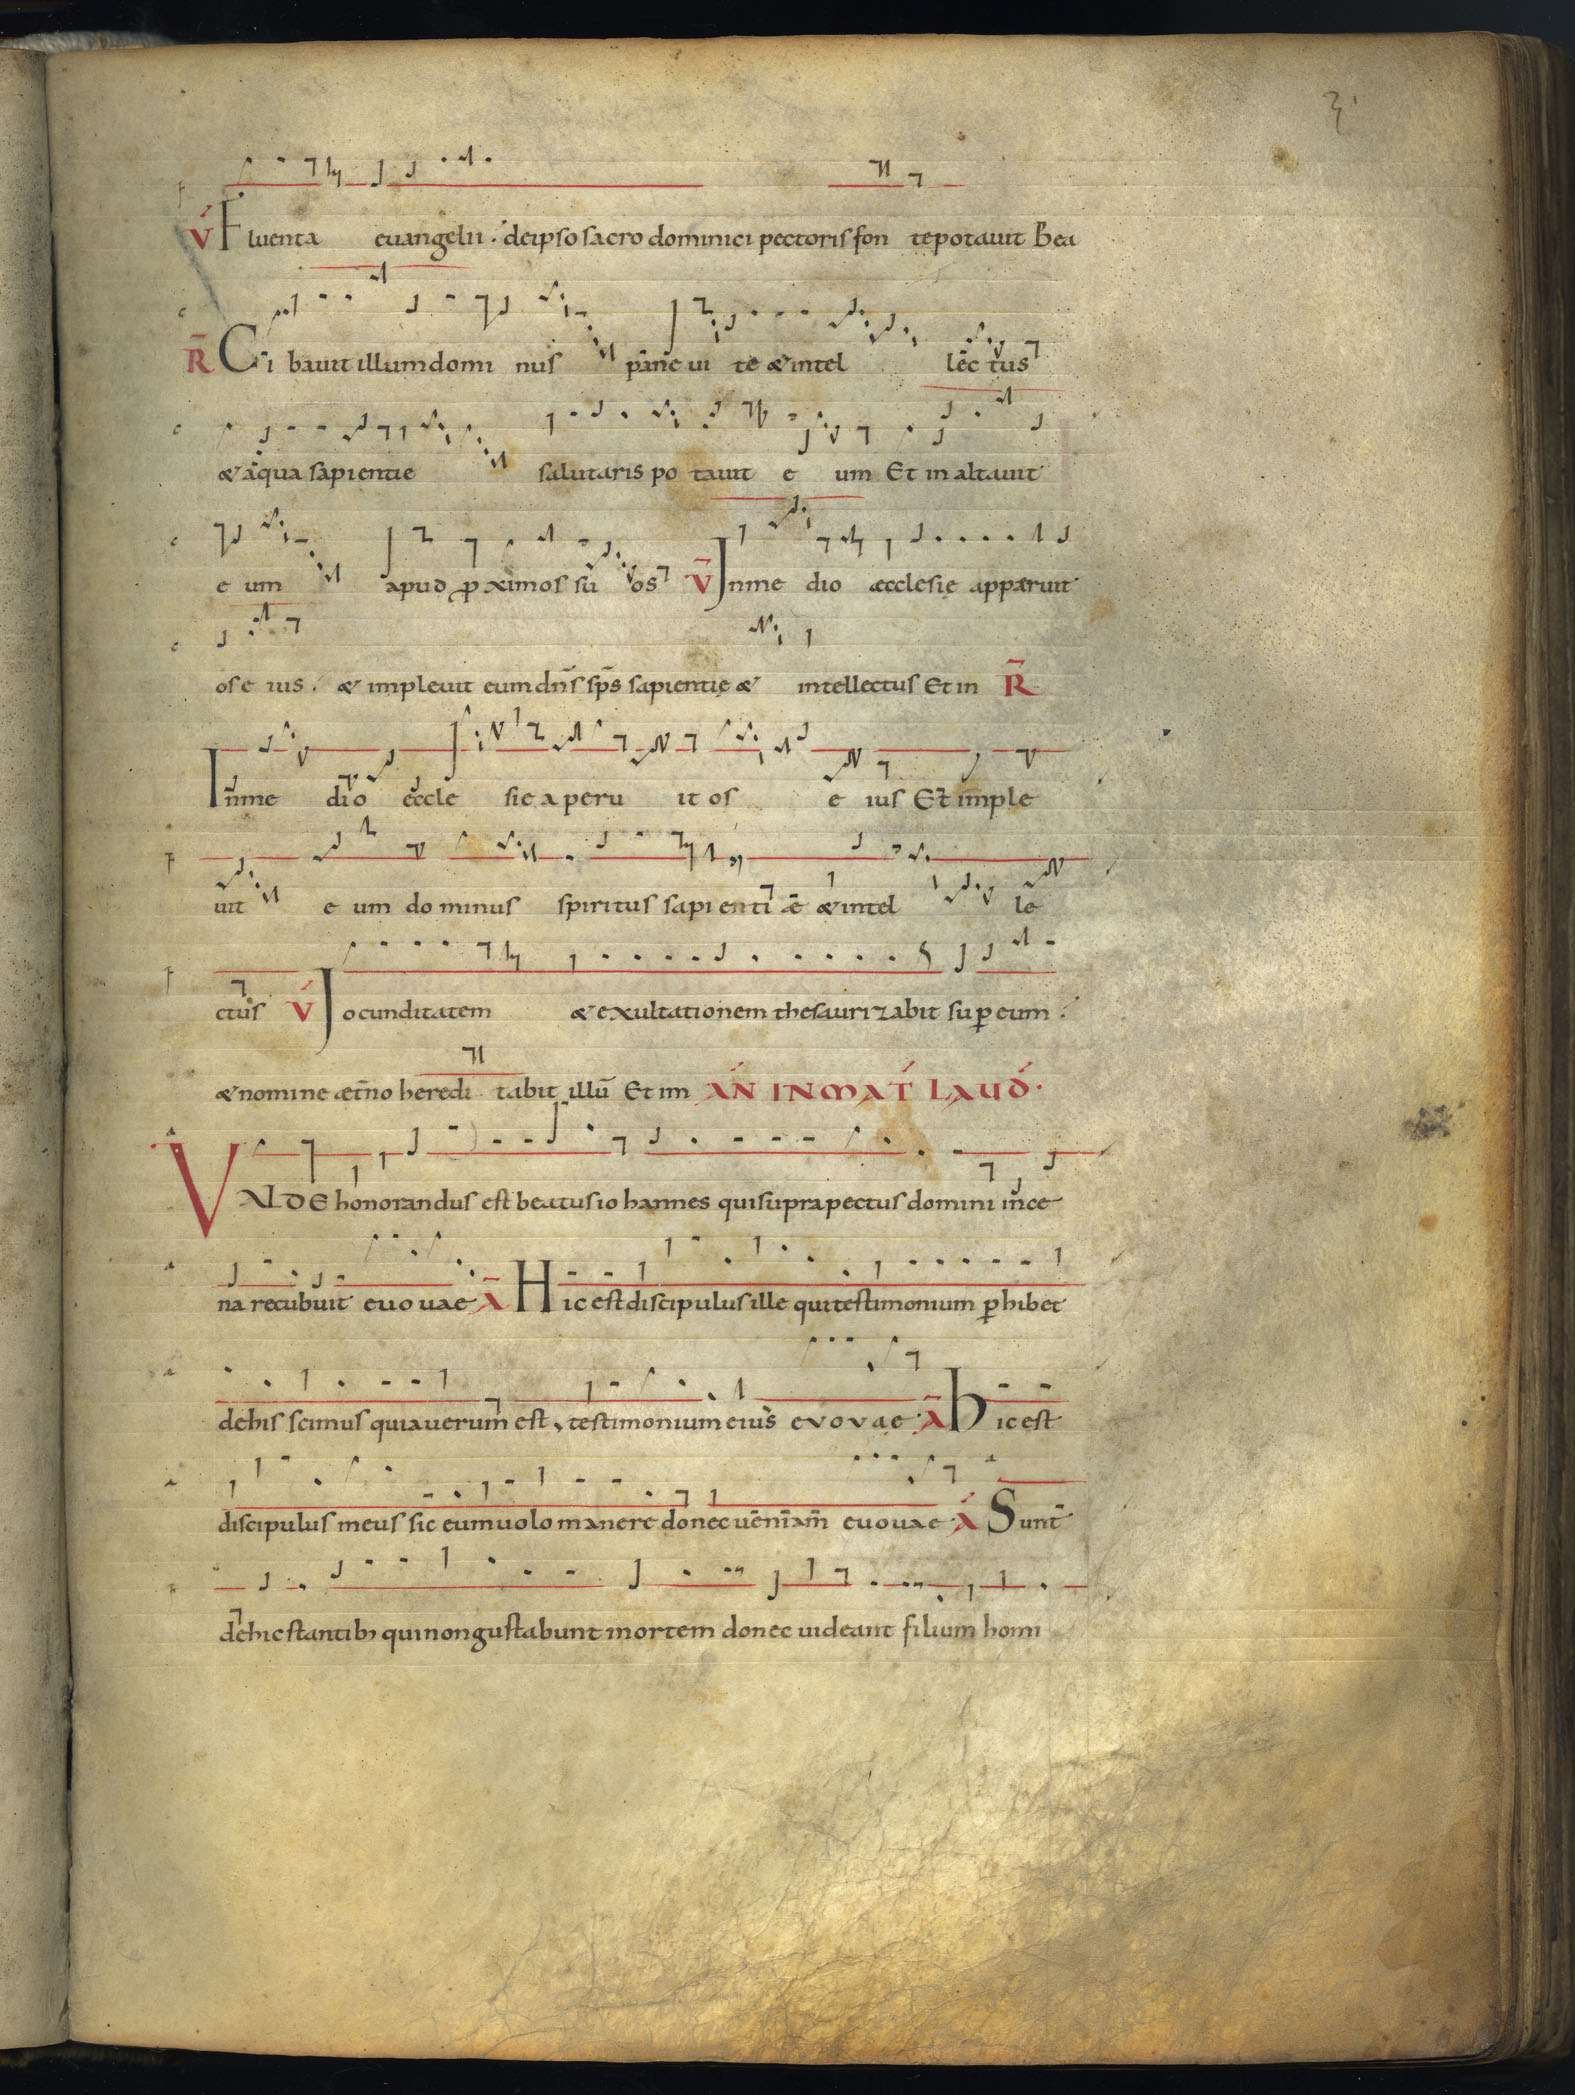 V́ Fluenta euangelii . deipso sacro dominici pectoris fon te potauit Bea
R̄ Ci bauit illum domi nus pane ui te & intel lec tus
& aqua sapientie salutaris po tauit e um Et in altauit
e um apud ꝓximos su os V̄ Inme dio æcclesię apparuit
os e ius . & impleuit eum dn̄s sp̄s sapientię & intellectus Et in R̄
Inme dio eccle sie a peru it os e ius Et imple
uit e um do minus spiritus sapienti æ & intel le
ctus V́ Jocunditatem & exultationem thesaurizabit suꝑ eum .
& nomine æt̄no heredi tabit illū Et im AŃ IN MAT́ LAUD́.
VALDE honorandus est beatus iohannes qui supra pectus domini ince
na recubuit euouae Ā Hic est discipulus ille qui testimonium ꝑhibet
dehis scimus quia uerum est, testimonium eius evovae Ā hic est
discipulus meus sic eum uolo manere donec ueniam euouae Á Sunt
dehic stantib; qui non gustabunt mortem donec uideant filium homi